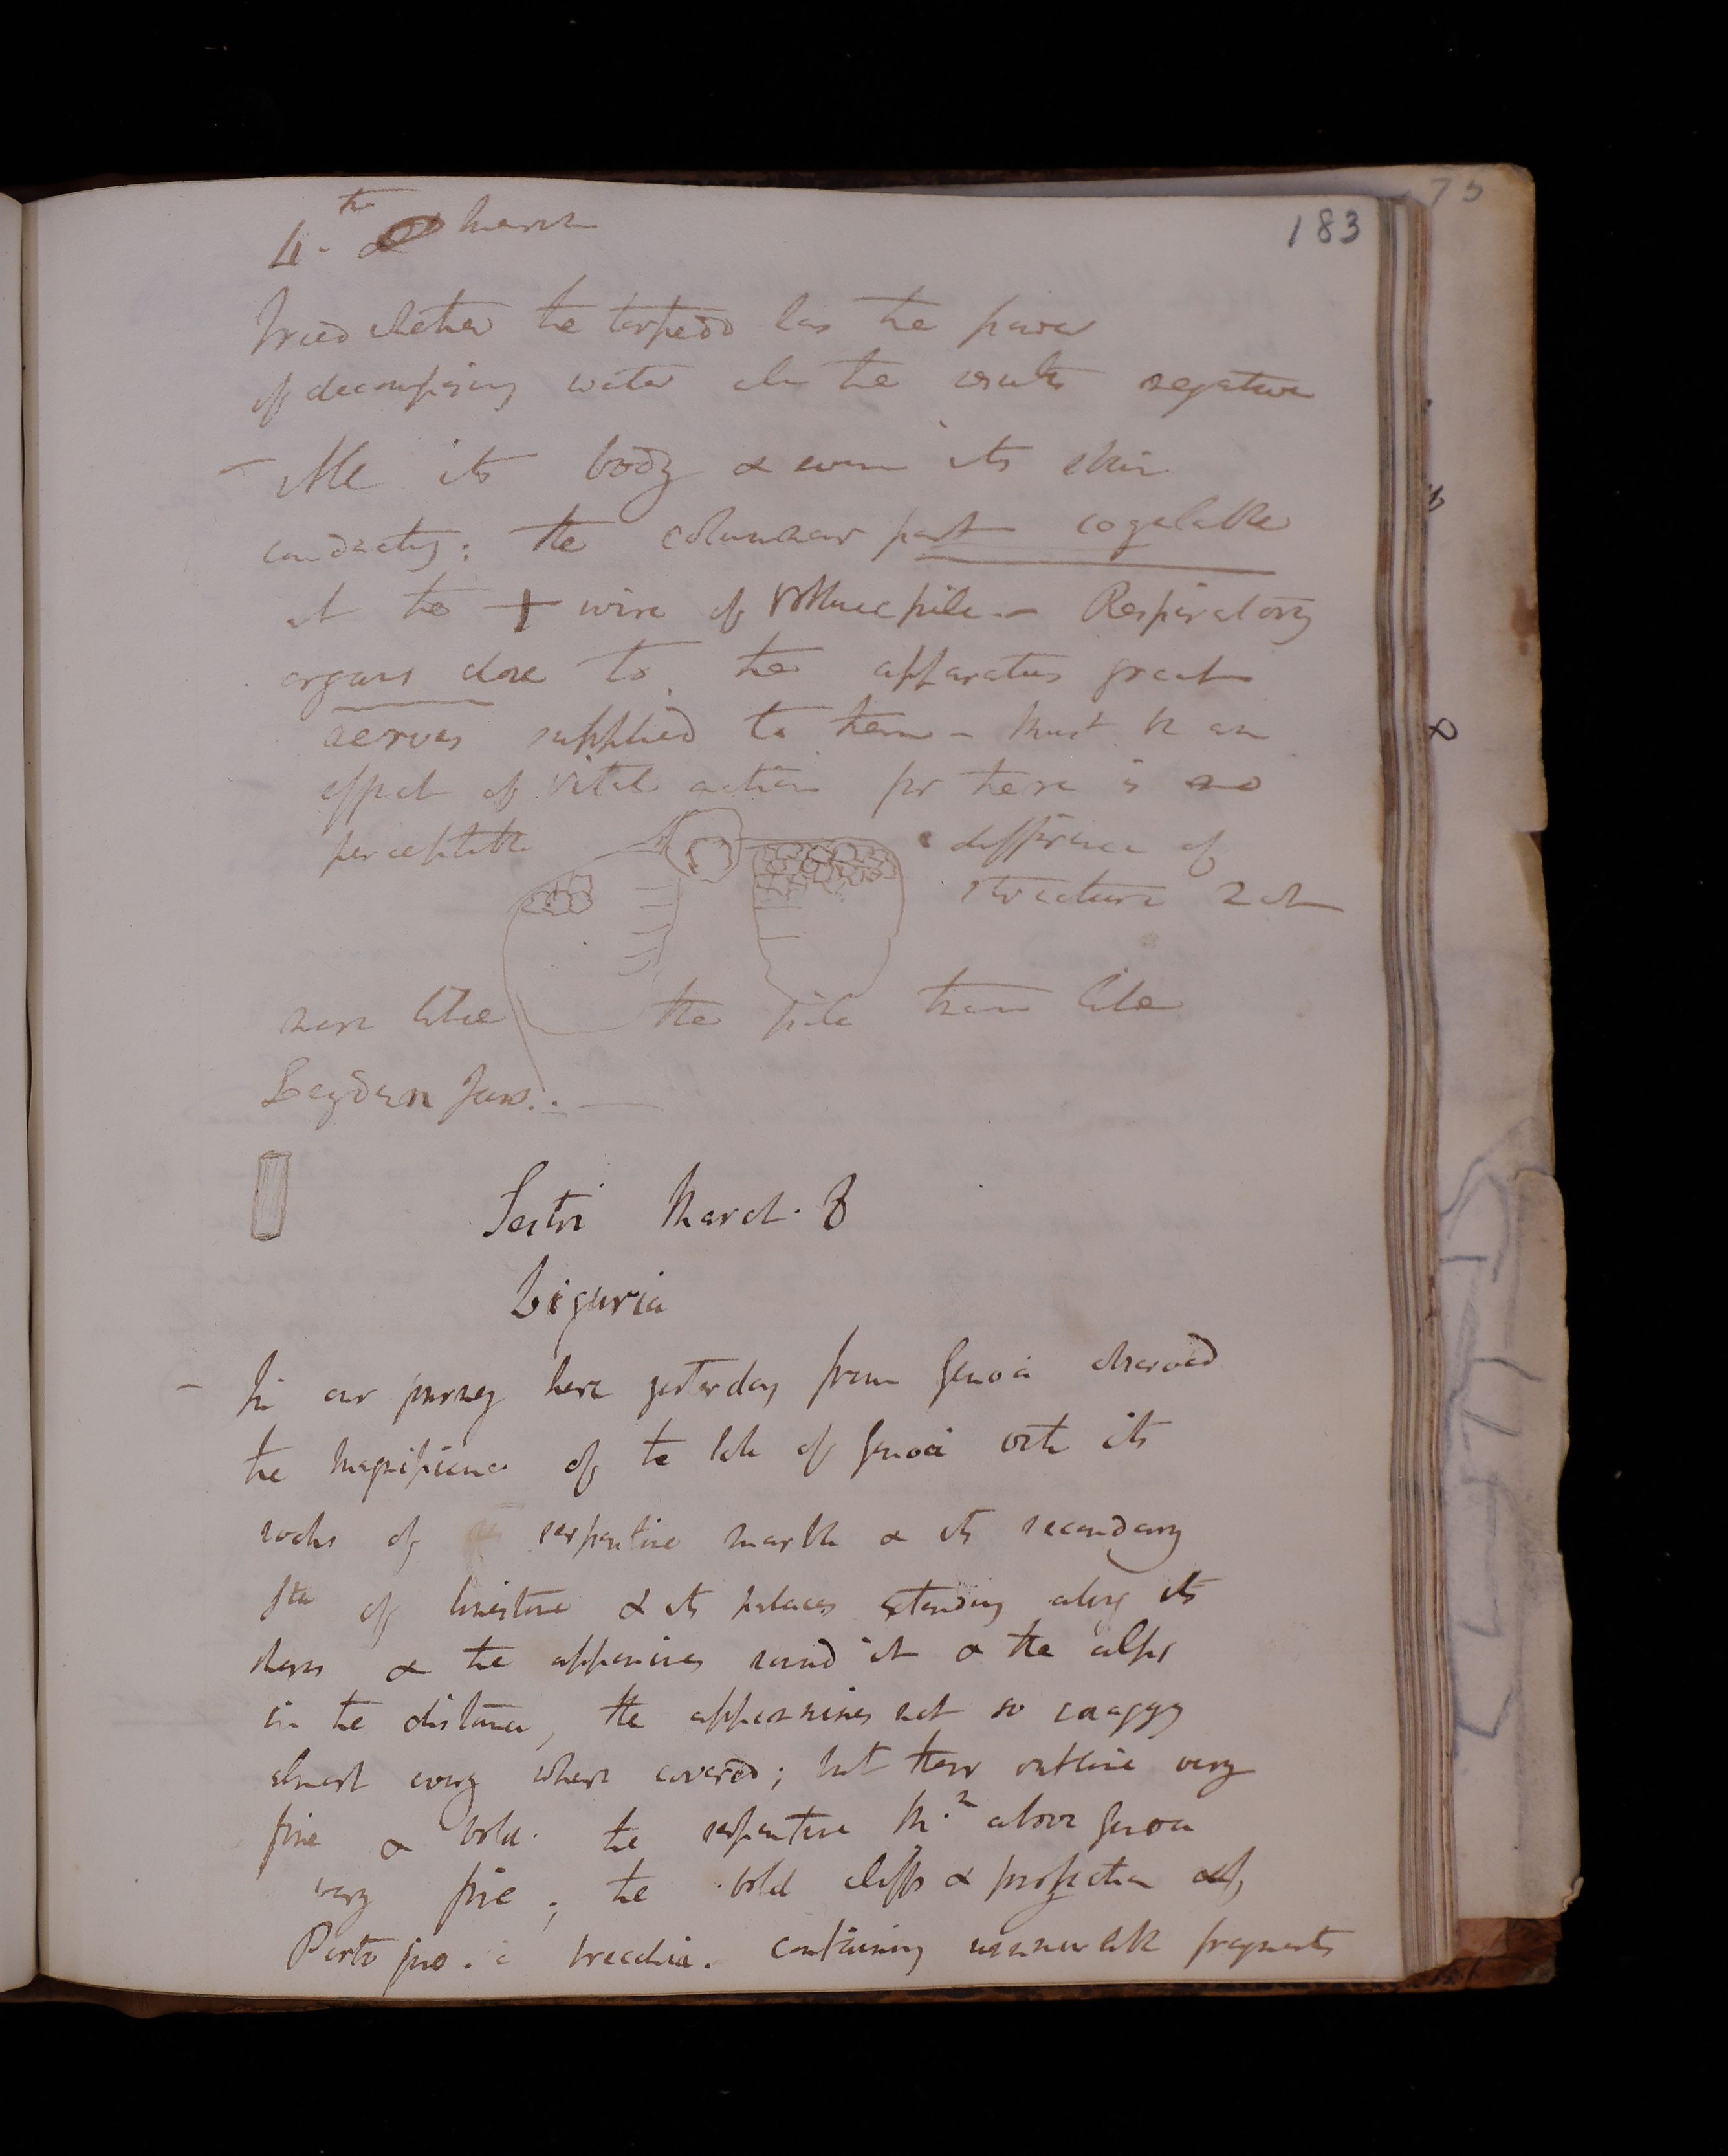 183
4.th March
Tried whether the torpedo has the power
of decomposing water the results negative
– All its body & even its skin
conducting: the columnar part cogulable
at the + wire of Voltaic pile – Respiratory
organs close to the apparatus great
nerves supplied to them – Must be an
effect of vital action for there is no
perceptible difference of
structure not
more like the pile than like
Leyden Jars. –
Sestri March. 8
Liguria
– In our journey here yesterday from Genoa observed
the magnificence of the of Genoa with its
rocks of serpentine marble & its secondary
of limestone & its palaces extending along its
shores & the appenines round it & the alps
in the distance, the appennines not so craggy
almost every where covered; but their outline very
fine & bold. the serpentine M.n above Genoa
very fine; the bold cliffs & projection of
Porto fino. a breccia. containing innumerable fragments